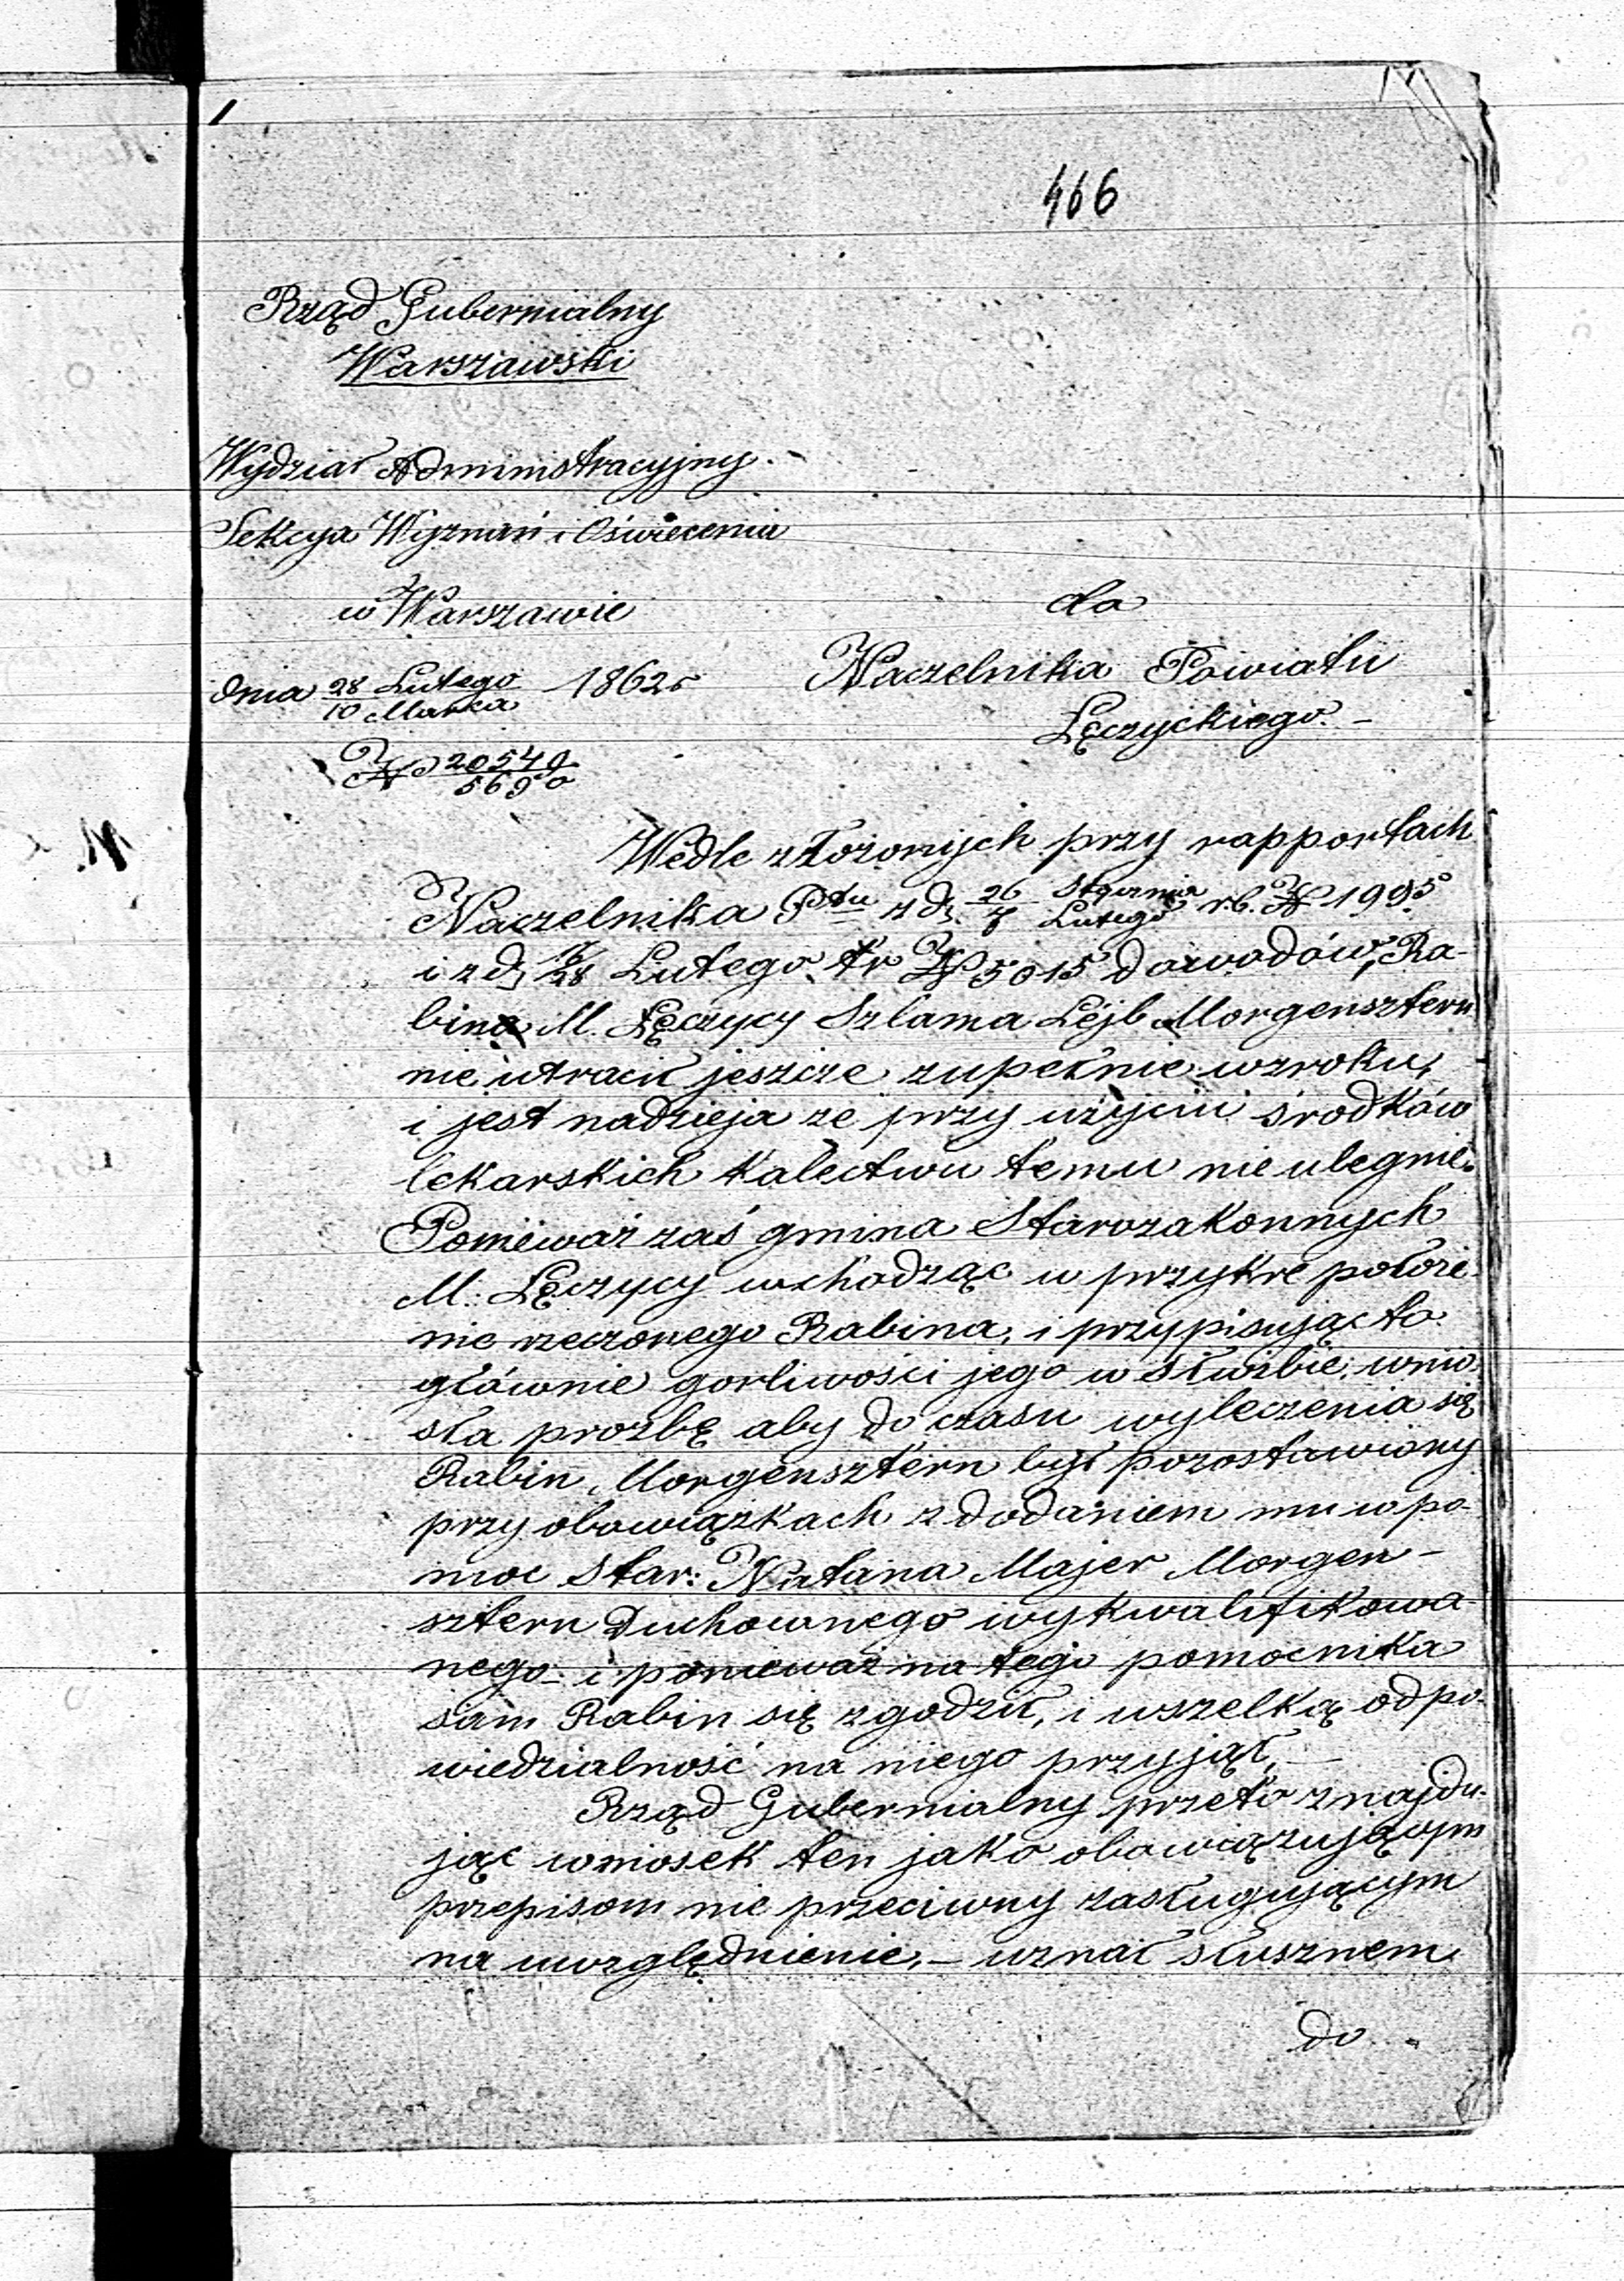 466
Rząd Gubernialny
Warszawski
Wydział Administracyjny.
Sekcya Wyznań i Oświecenia
w Warszawie
dnia 28 Lutego / 10 Marca 1862 r
№ 20549 / 5690
do
Naczelnika Powiatu
Łęczyckiego. –
Wedle złożonych przy rapportach
Naczelnika Ptu z d. 26 Stycznia / 7 Lutego r.b. № 1995
i z d. 16/28 Lutego tr № 5015 dowodów, Ra-
bin M. Łęczycy Szlama Lejb Morgensztern
nie utracił jeszcze zupełnie wzroku,
i jest nadzieja że przy użyciu środków
lekarskich kalectwu temu nie ulegnie.
Ponieważ zaś gmina Starozakonnych
M: Łęczycy wchodząc w przykre położe-
nie rzeczonego Rabina, i przypisując to
głównie gorliwości jego w służbie, wnio
sła prożbę aby do czasu wyleczenia się
Rabin Morgensztern był pozostawiony
przy obowiązkach z dodaniem mu w po-
moc Star: Natana Majer Morgen-
sztern Duchownego wykwalifikowa-
nego – i ponieważ na tego pomocnika
sam Rabin się zgodził, i wszelką odpo-
wiedzialność na niego przyjął, –
Rząd Gubernialny przeto znajdu-
jąc wniosek ten jako obowiązującym
przepisom nie przeciwny zasługującym
na uwzględnienie, – uznał słusznem
do